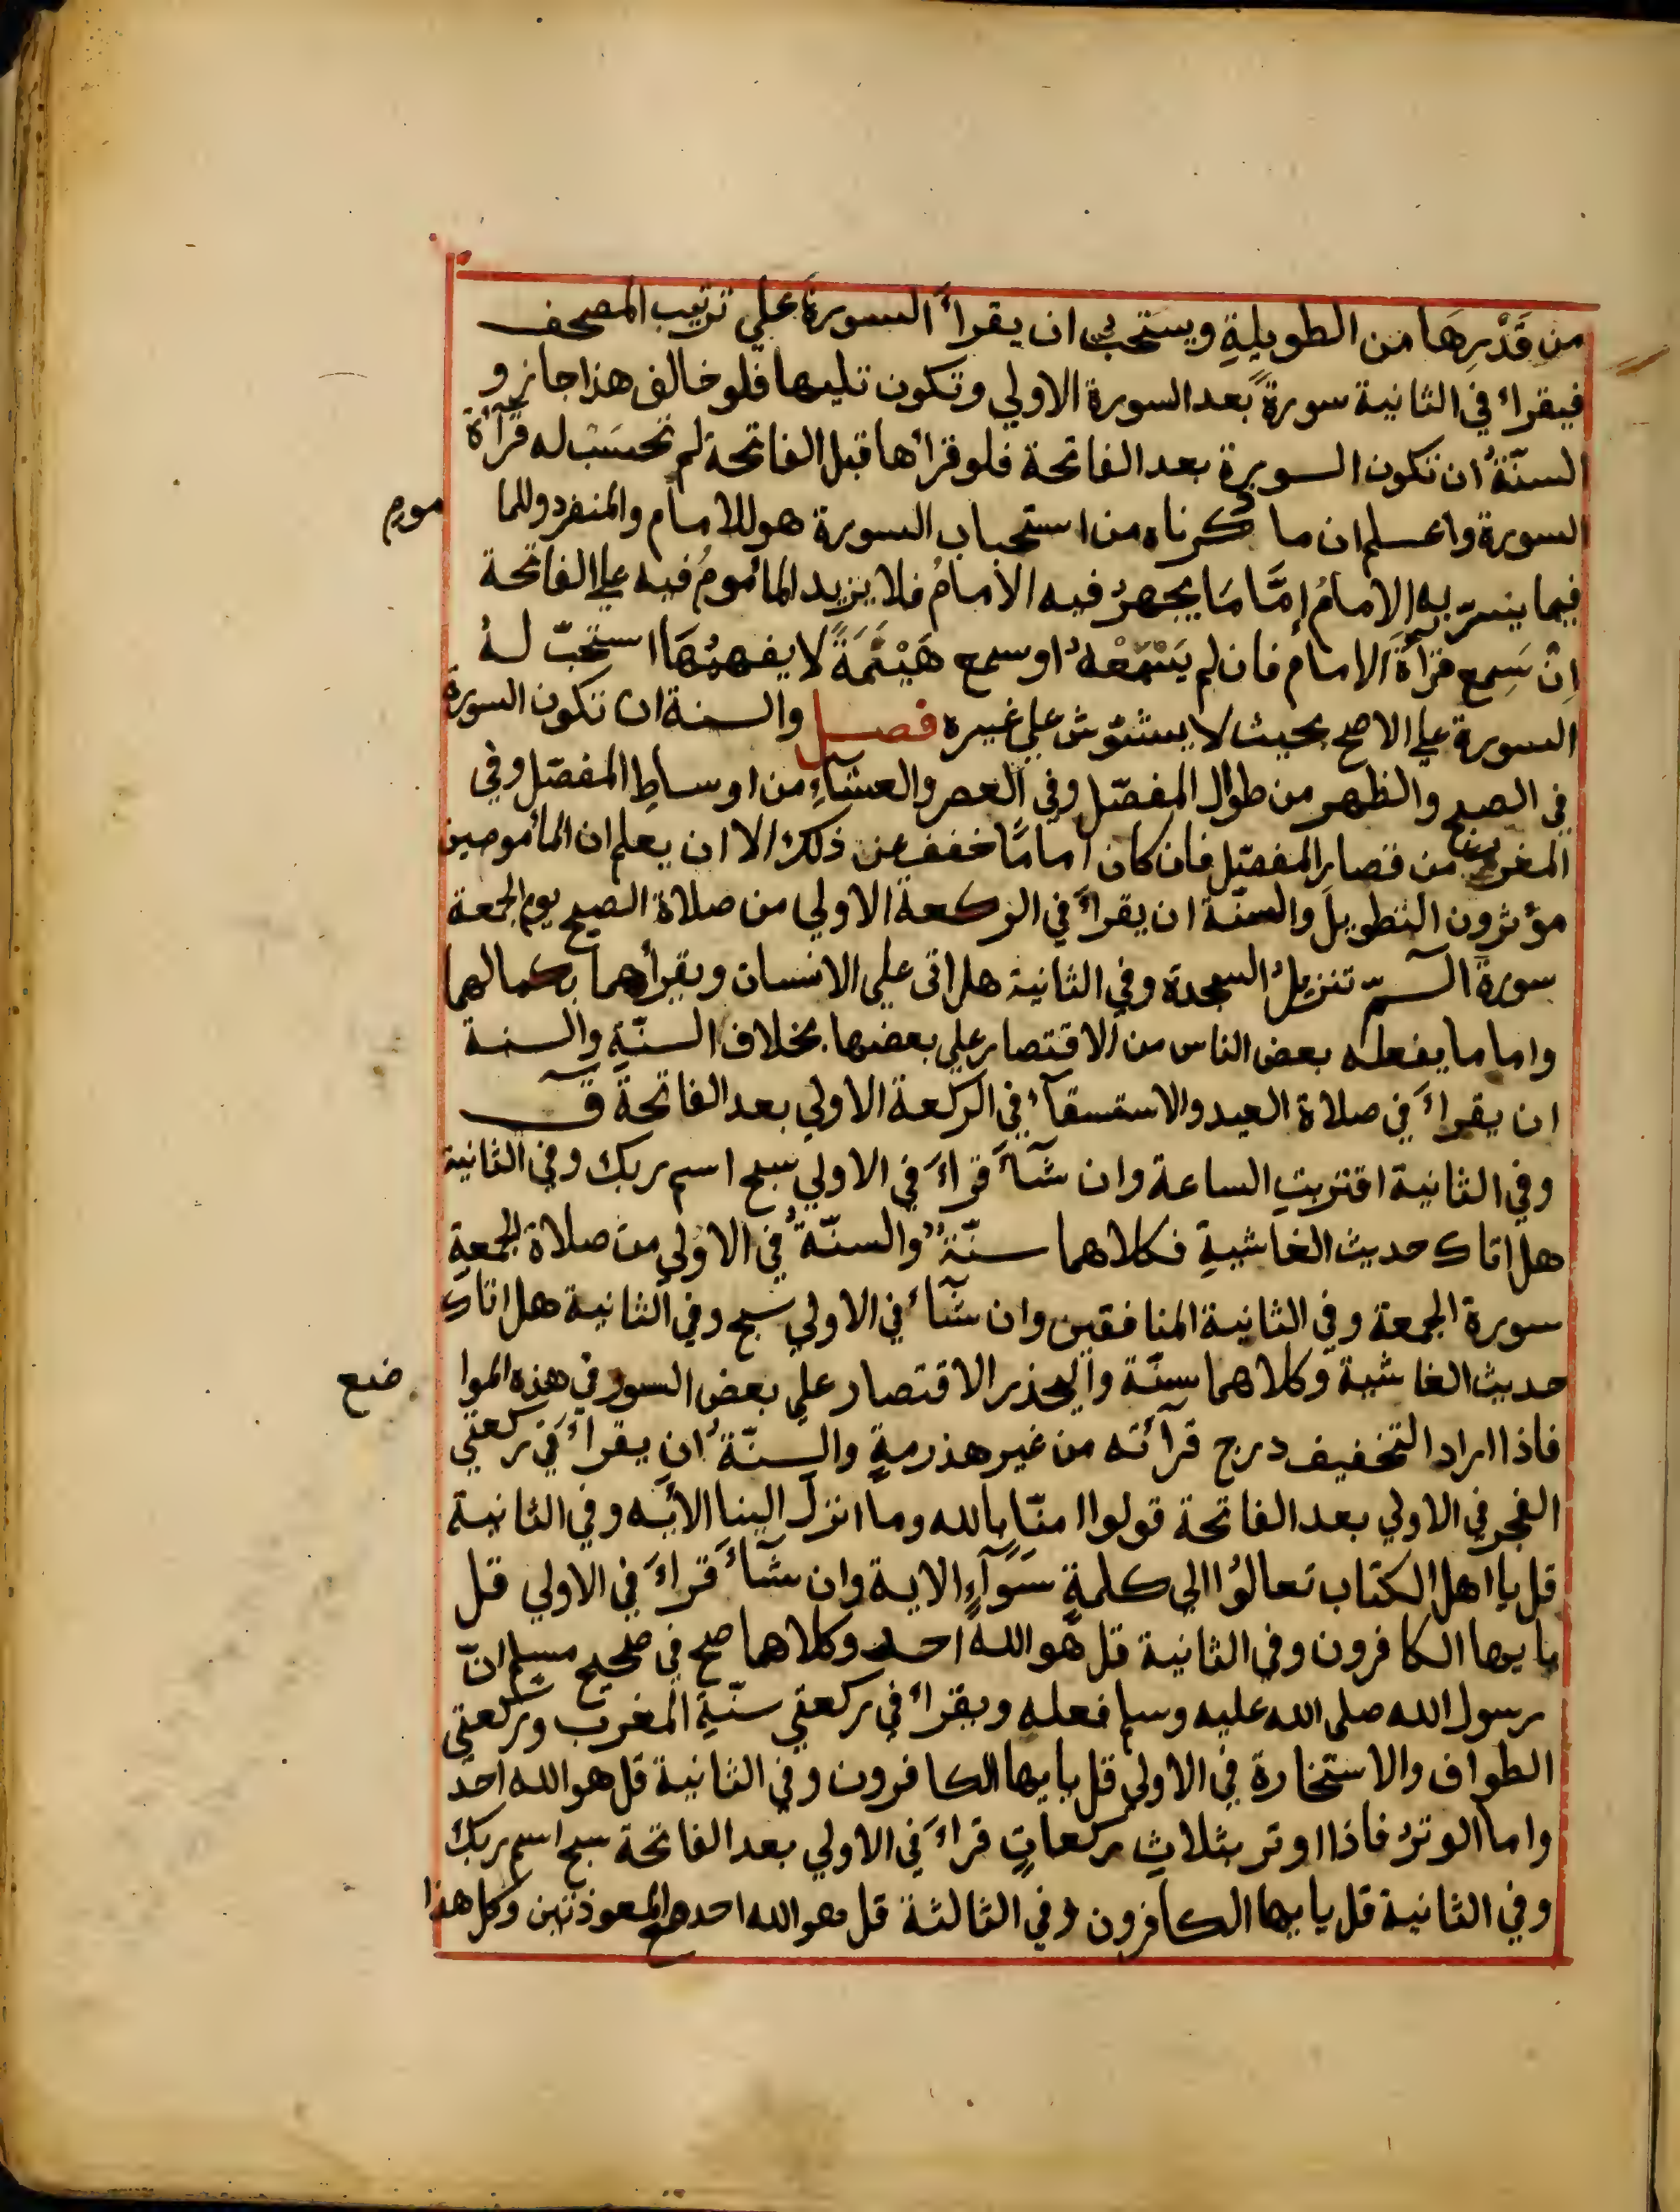 من قَدْرِهَا من الطويلةِ ويستحب ان يقرأَ السورةَ علي ترتيب المصحف
فيقراء في الثانية سورةً بعد السورة الاولي وتكون تليها فلو خالف هذا جاز و
السنّةُ ان تكون السورة بعد الفاتحة فلو قرأها قبل الفاتحة لم تحسَبْ له قرآءة
السورة واعلم ان ما ذكرناه من استحباب السورة هو للامام والمنفرد وللما موم
فيما يسرّ به الامامُ إمَّا مَا يجهرُ فيه الامامُ فلا يزيد المأمومُ فيه علي الفاتحة
اِنْ سَمِع قرآءَةَ الامام فان لم يَسْمَعْهُ او سمع هَيْنَمَةً لا يفهمُهَا استحبّ لهُ
السورة علي الاصح بحيث لا يشوّش علي غيره فصل والسنة ان تكون السورة
في الصبح والظهر من طوال المفصّل وفي العصر والعشآءِ من اوساطِ المفصّل وفي
المغرب من قصارِ المفصّل فان كان امامًا خفف عن ذلك الا ان يعلم ان المأمومين
مؤثرون التطويلَ والسنّة ان يقرأَ في الركعة الاولي من صلاة الصبح يوم الجمعة
سورةَ الٓمّ تنزيلُ السجدة وفي الثانية هل اتى علي الانسان ويقرأهما بكمالهما
واما ما يفعله بعض الناس من الاقتصار علي بعضها بخلاف السنّةِ والسنة
ان يقراءَ في صلاة العيد والاستسقآء في الركعة الاولي بعد الفاتحة قٓ
وفي الثانية اقتربتِ الساعة وان شآءَ قراءَ في الاولي سبح اسم ربك وفي الثانية
هل اتاك حديث الغاشيةِ فكلاهما سنّةٌ والسنّةُ في الاولي من صلاة الجمعةِ
سورة الجمعة وفي الثانية المنافقين وان شآءَ في الاولي سبح وفي الثانية هل اتاك
حديث الغاشية وكلاهما سنّة واليحذر الاقتصار علي بعض السور في هذه الموا ضع
فاذا اراد التخفيف درج قرآئته من غير هذرمةٍ والسنّةُ ان يقراءَ في ركعتي
الفجر في الاولي بعد الفاتحة قولوا امنّا بالله وما انزل الينا الأيه وفي الثانية
قل يا اهل الكتاب تعالوُا الي كلمةٍ سَوَآءٍ الاية وان شآءَ قراءَ في الاولي قل
يا يها الكافرون وفي الثانية قل هو اللهُ احد وكلاهما صح في صحيح مسلم انّ
رسول الله صلى الله عليه وسلم فعله ويقراء في ركعتي سنّةِ المغرب وركعتي
الطواف والاستخارة في الاولي قل يا يها الكافرون وفي الثانية قل هو الله احدٌ
واما الوترُ فاذا اوتر بثلاثِ ركعاتٍ قراءَ في الاولي بعد الفاتحة سبح اسم ربك
وفي الثانية قل يا يها الكافرون وفي الثالثة قل هو الله احد مع المعوذتين وكل هذا